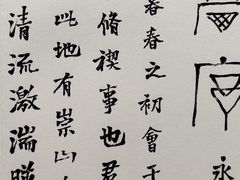 永
暮春之初會于
脩禊事也君
此地有崇山
清流激湍暎